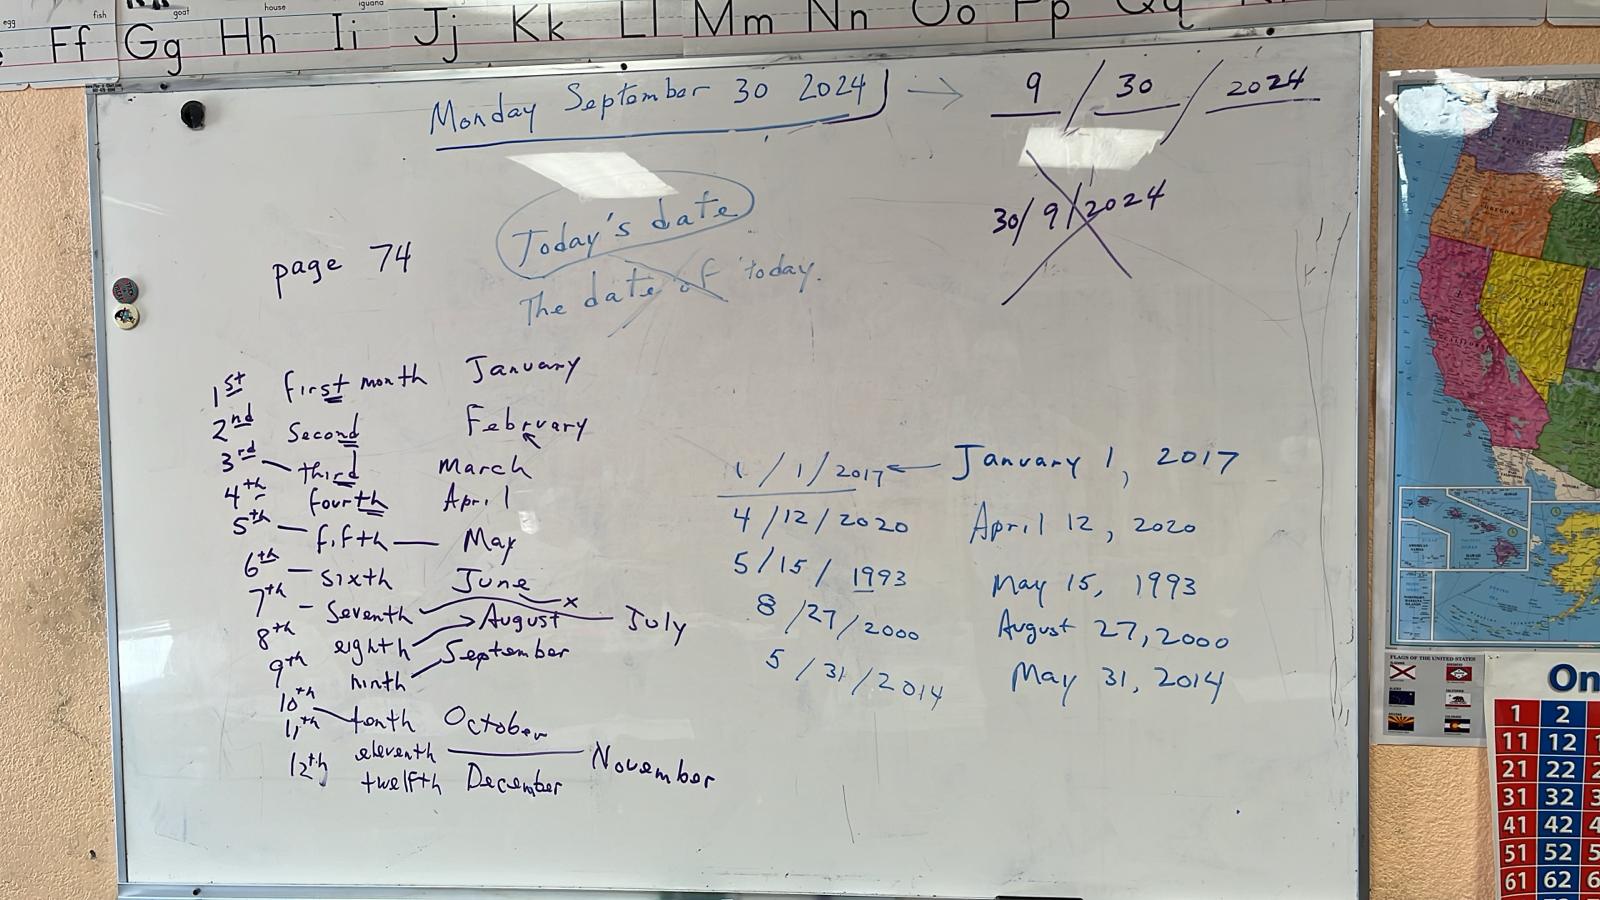 egg fish goat house iguana
Ff Gg Hh Ii Jj Kk Ll Mm Nn Oo Pp Qq
Monday September 30 2024 → 9 / 30 / 2024
30/9/2024
Today's date
The date of today.
page 74
1st first month January
2nd Second February
3rd third March
4th fourth April
5th fifth May
6th sixth June
7th seventh July
8th eighth August
9th ninth September
10th tenth October
11th eleventh November
12th twelfth December
1/1/2017 ← January 1, 2017
4/12/2020 April 12, 2020
5/15/1993 May 15, 1993
8/27/2000 August 27, 2000
5/31/2014 May 31, 2014
OREGON
NEVADA
CALIFORNIA
FLAGS OF THE UNITED STATES
On
1 2
11 12 1
21 22 2
31 32 3
41 42 4
51 52 5
61 62 6